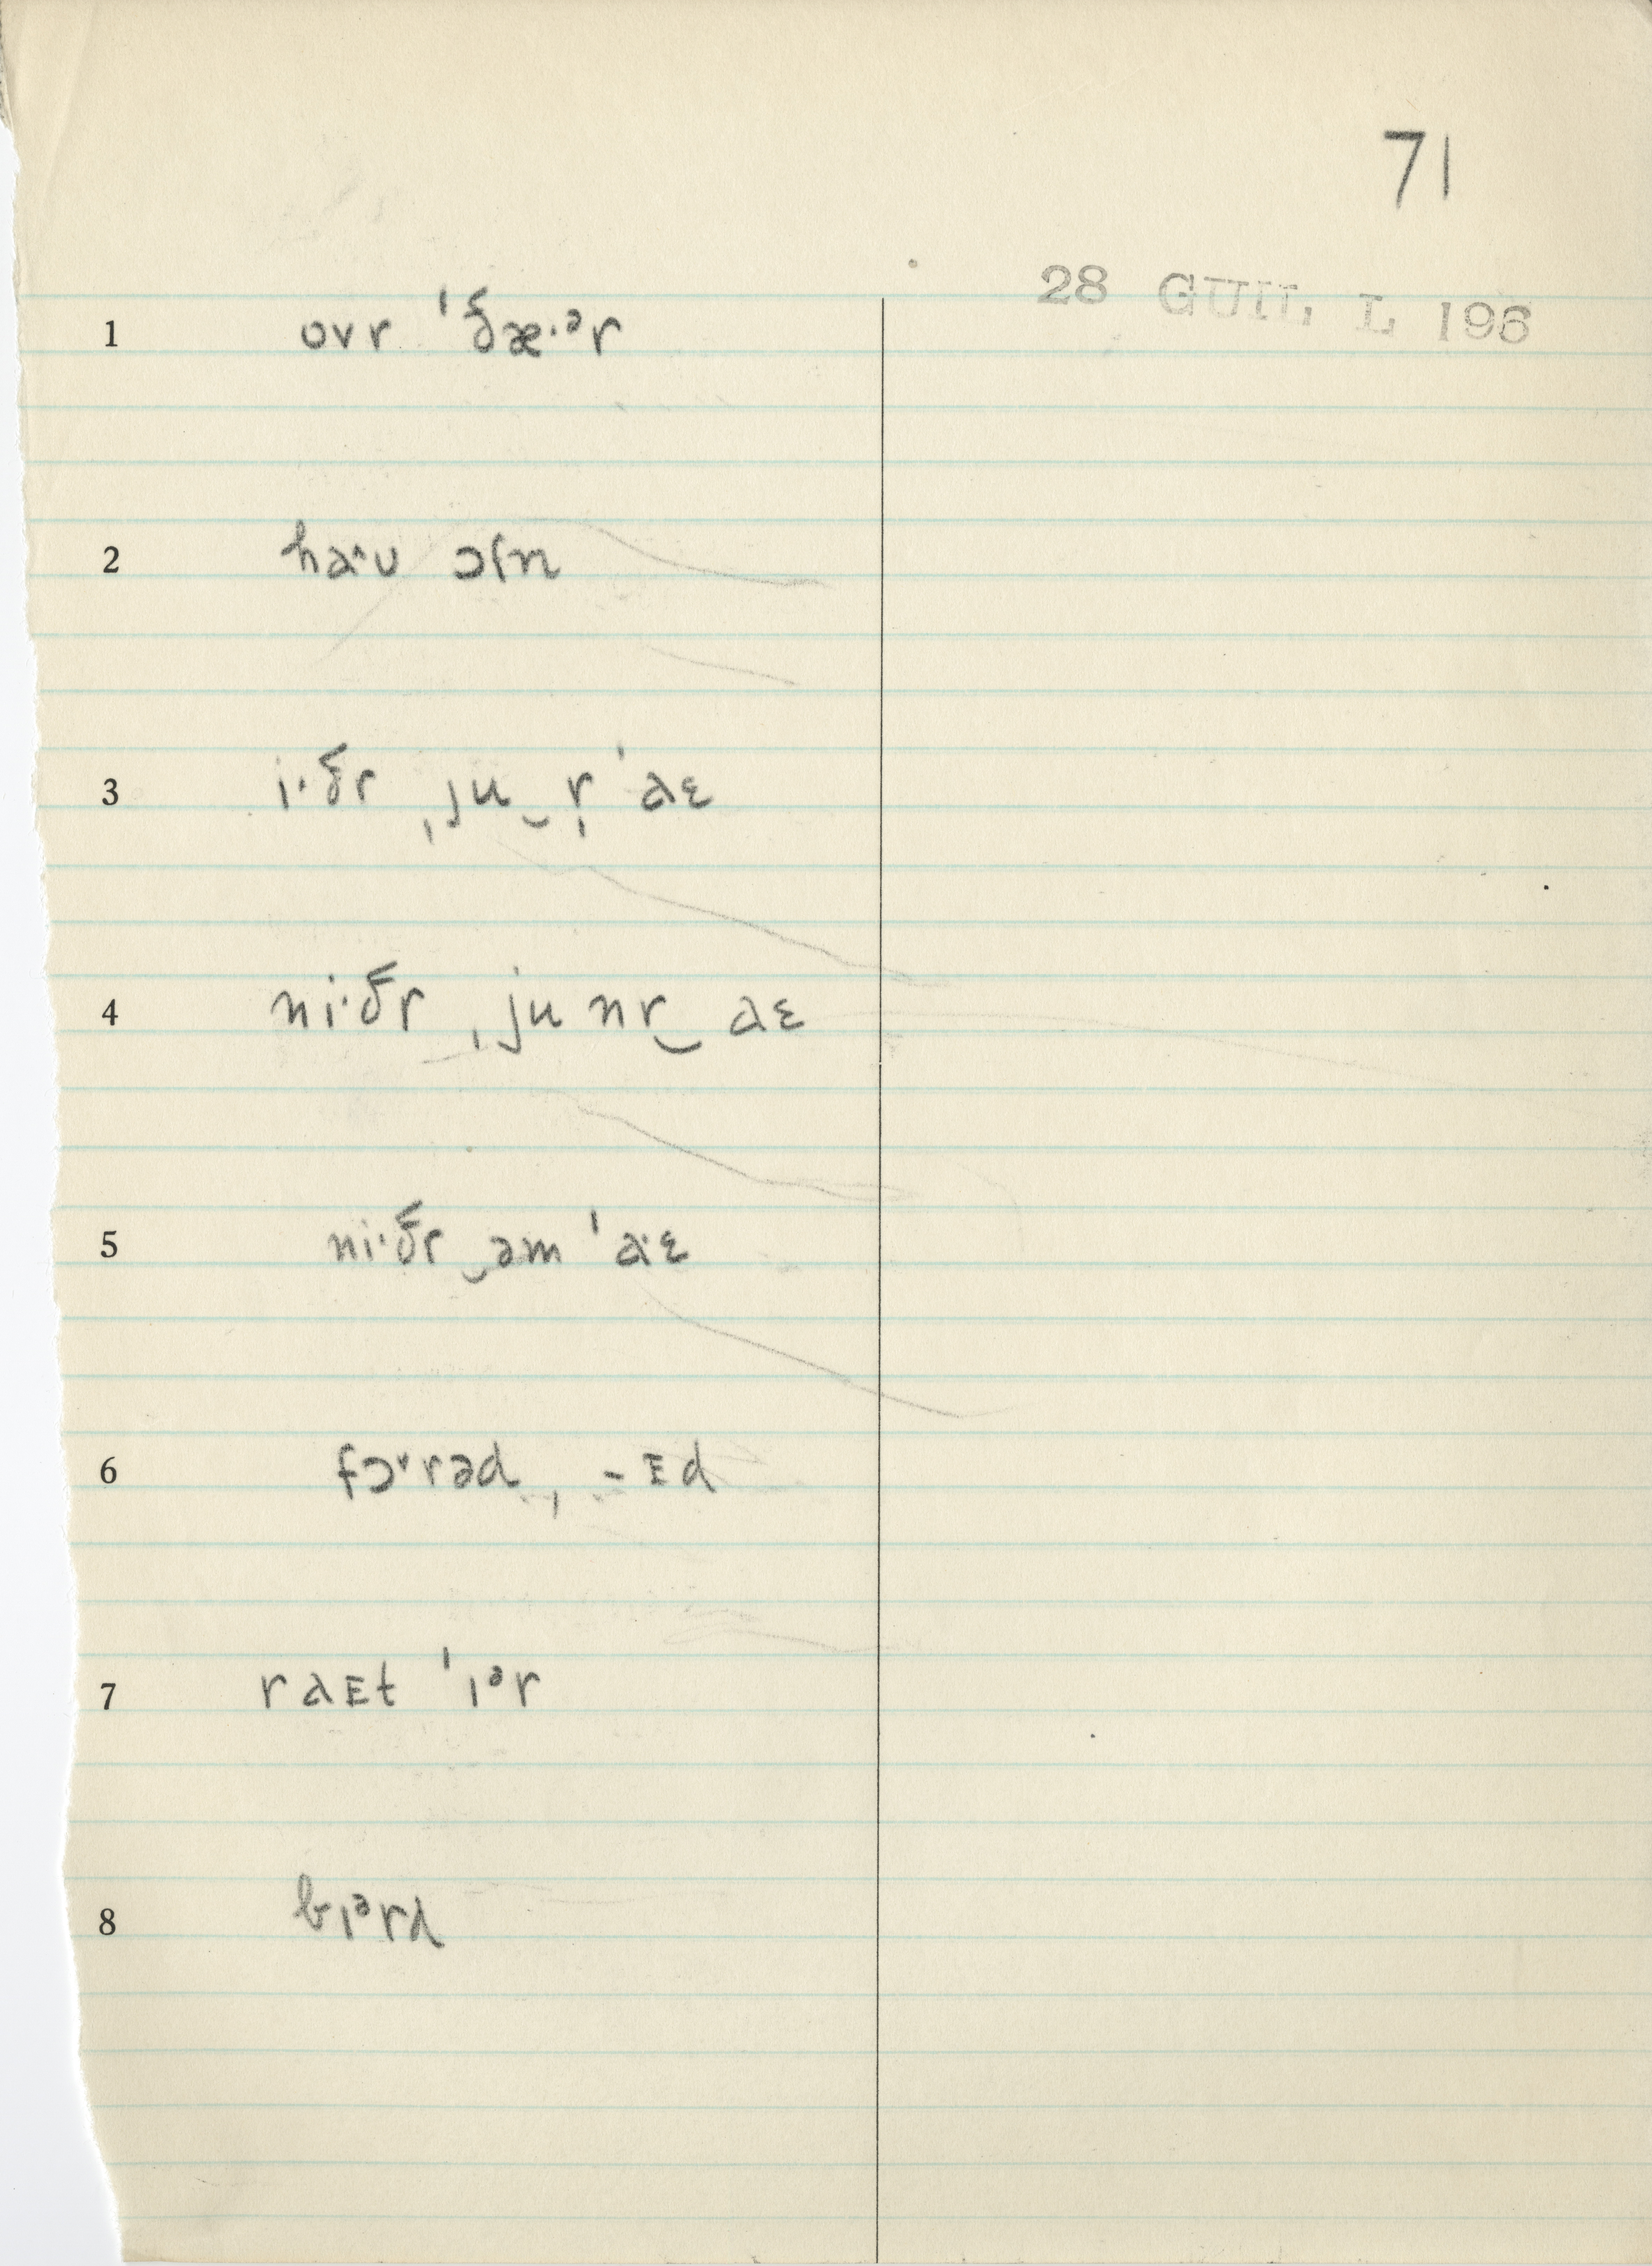 71
28 GUIL L 196
1 ovr ˈðæ·ᵊr
2 haˑʊ ɔfn
3 i·ðr ˌju‿r̩ ˈaɛ
4 ni·ðr ˌju nr‿aɛ
5 ni·ðr‿əm ˈa·ɛ
6 fɔ˞rəd, -ᴇd
7 raᴇt ˈɪᵊr
8 bɪᵊrd